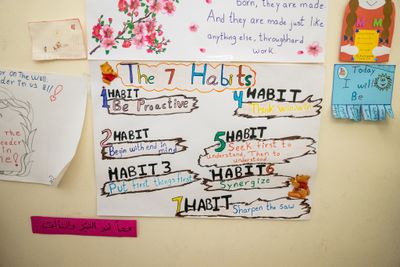 born, they are made
And they are made just like
anything else, through hard
work.
The 7 Habits
1 HABIT
Be Proactive
2 HABIT
Begin with end in
mind
HABIT 3
Put first things first
4 HABIT
Think win win
5 HABIT
Seek first to
understand, Then to
understood
HABIT 6
Synergize
7 HABIT
Sharpen the saw
on The Wall
Leader In us all!
the
Leader
in
me!
M M
Today
I will
Be
معاً لغد